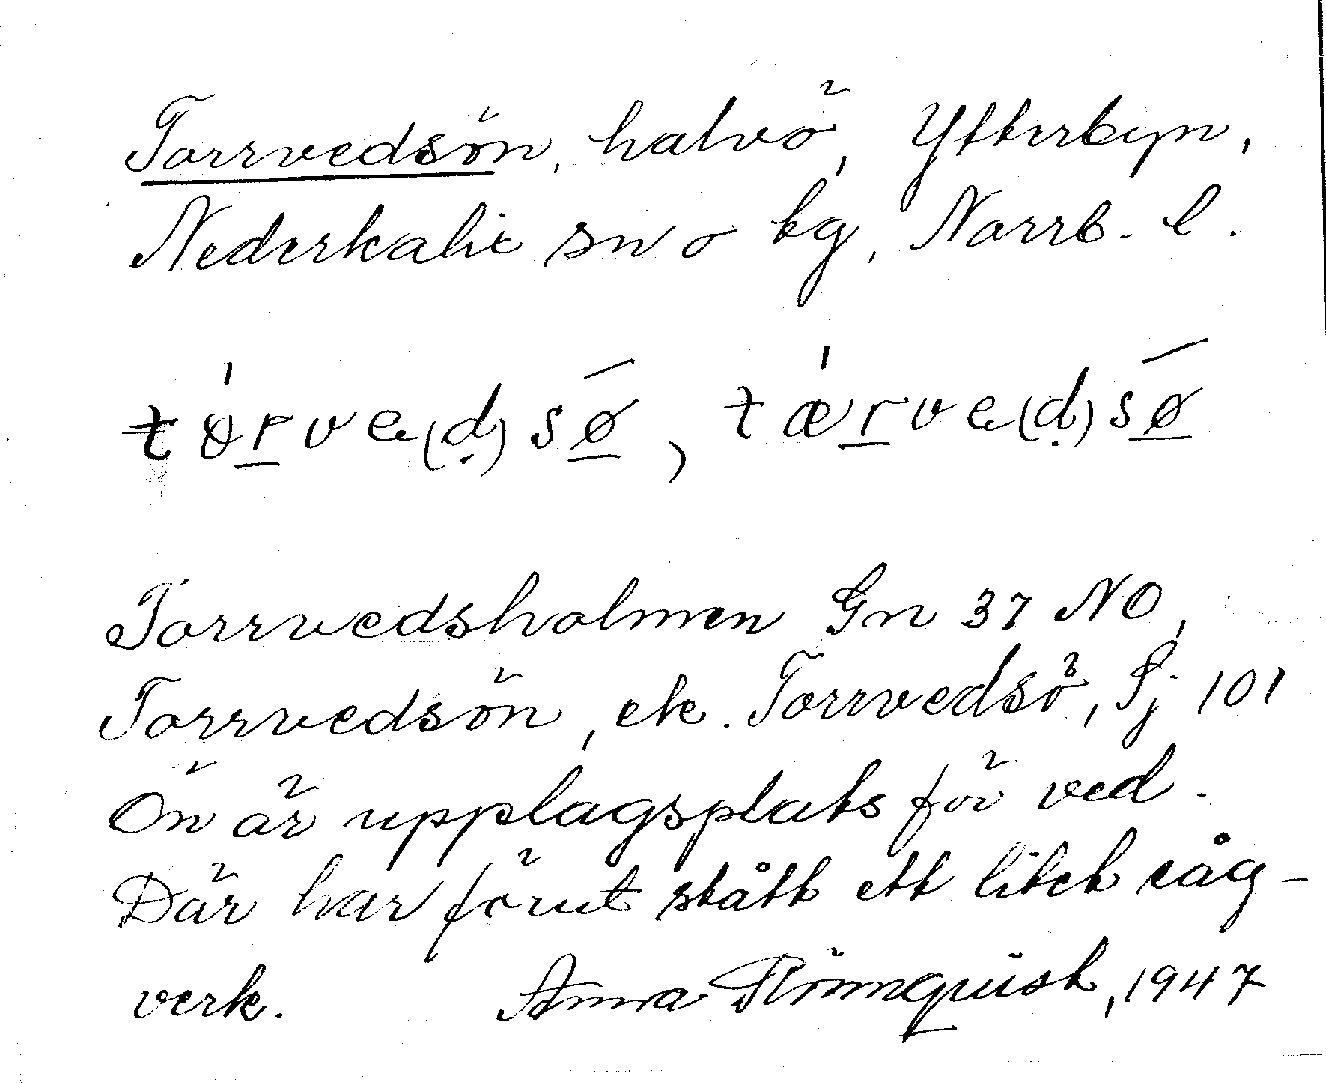 Torrvedsön, halvö, Ytterbyn,
Nederkalix sn o kg, Norrb. l.
tørve(ḍ)sø, tærve(ḍ)sø
Torrvedsholmen Gn 37 NO,
Torrvedsön, ek. Torrvedsö, Sj 101
Ön är upplagsplats för ved.
Där har förut stått ett litet såg-
verk. Anna Strömquist, 1947